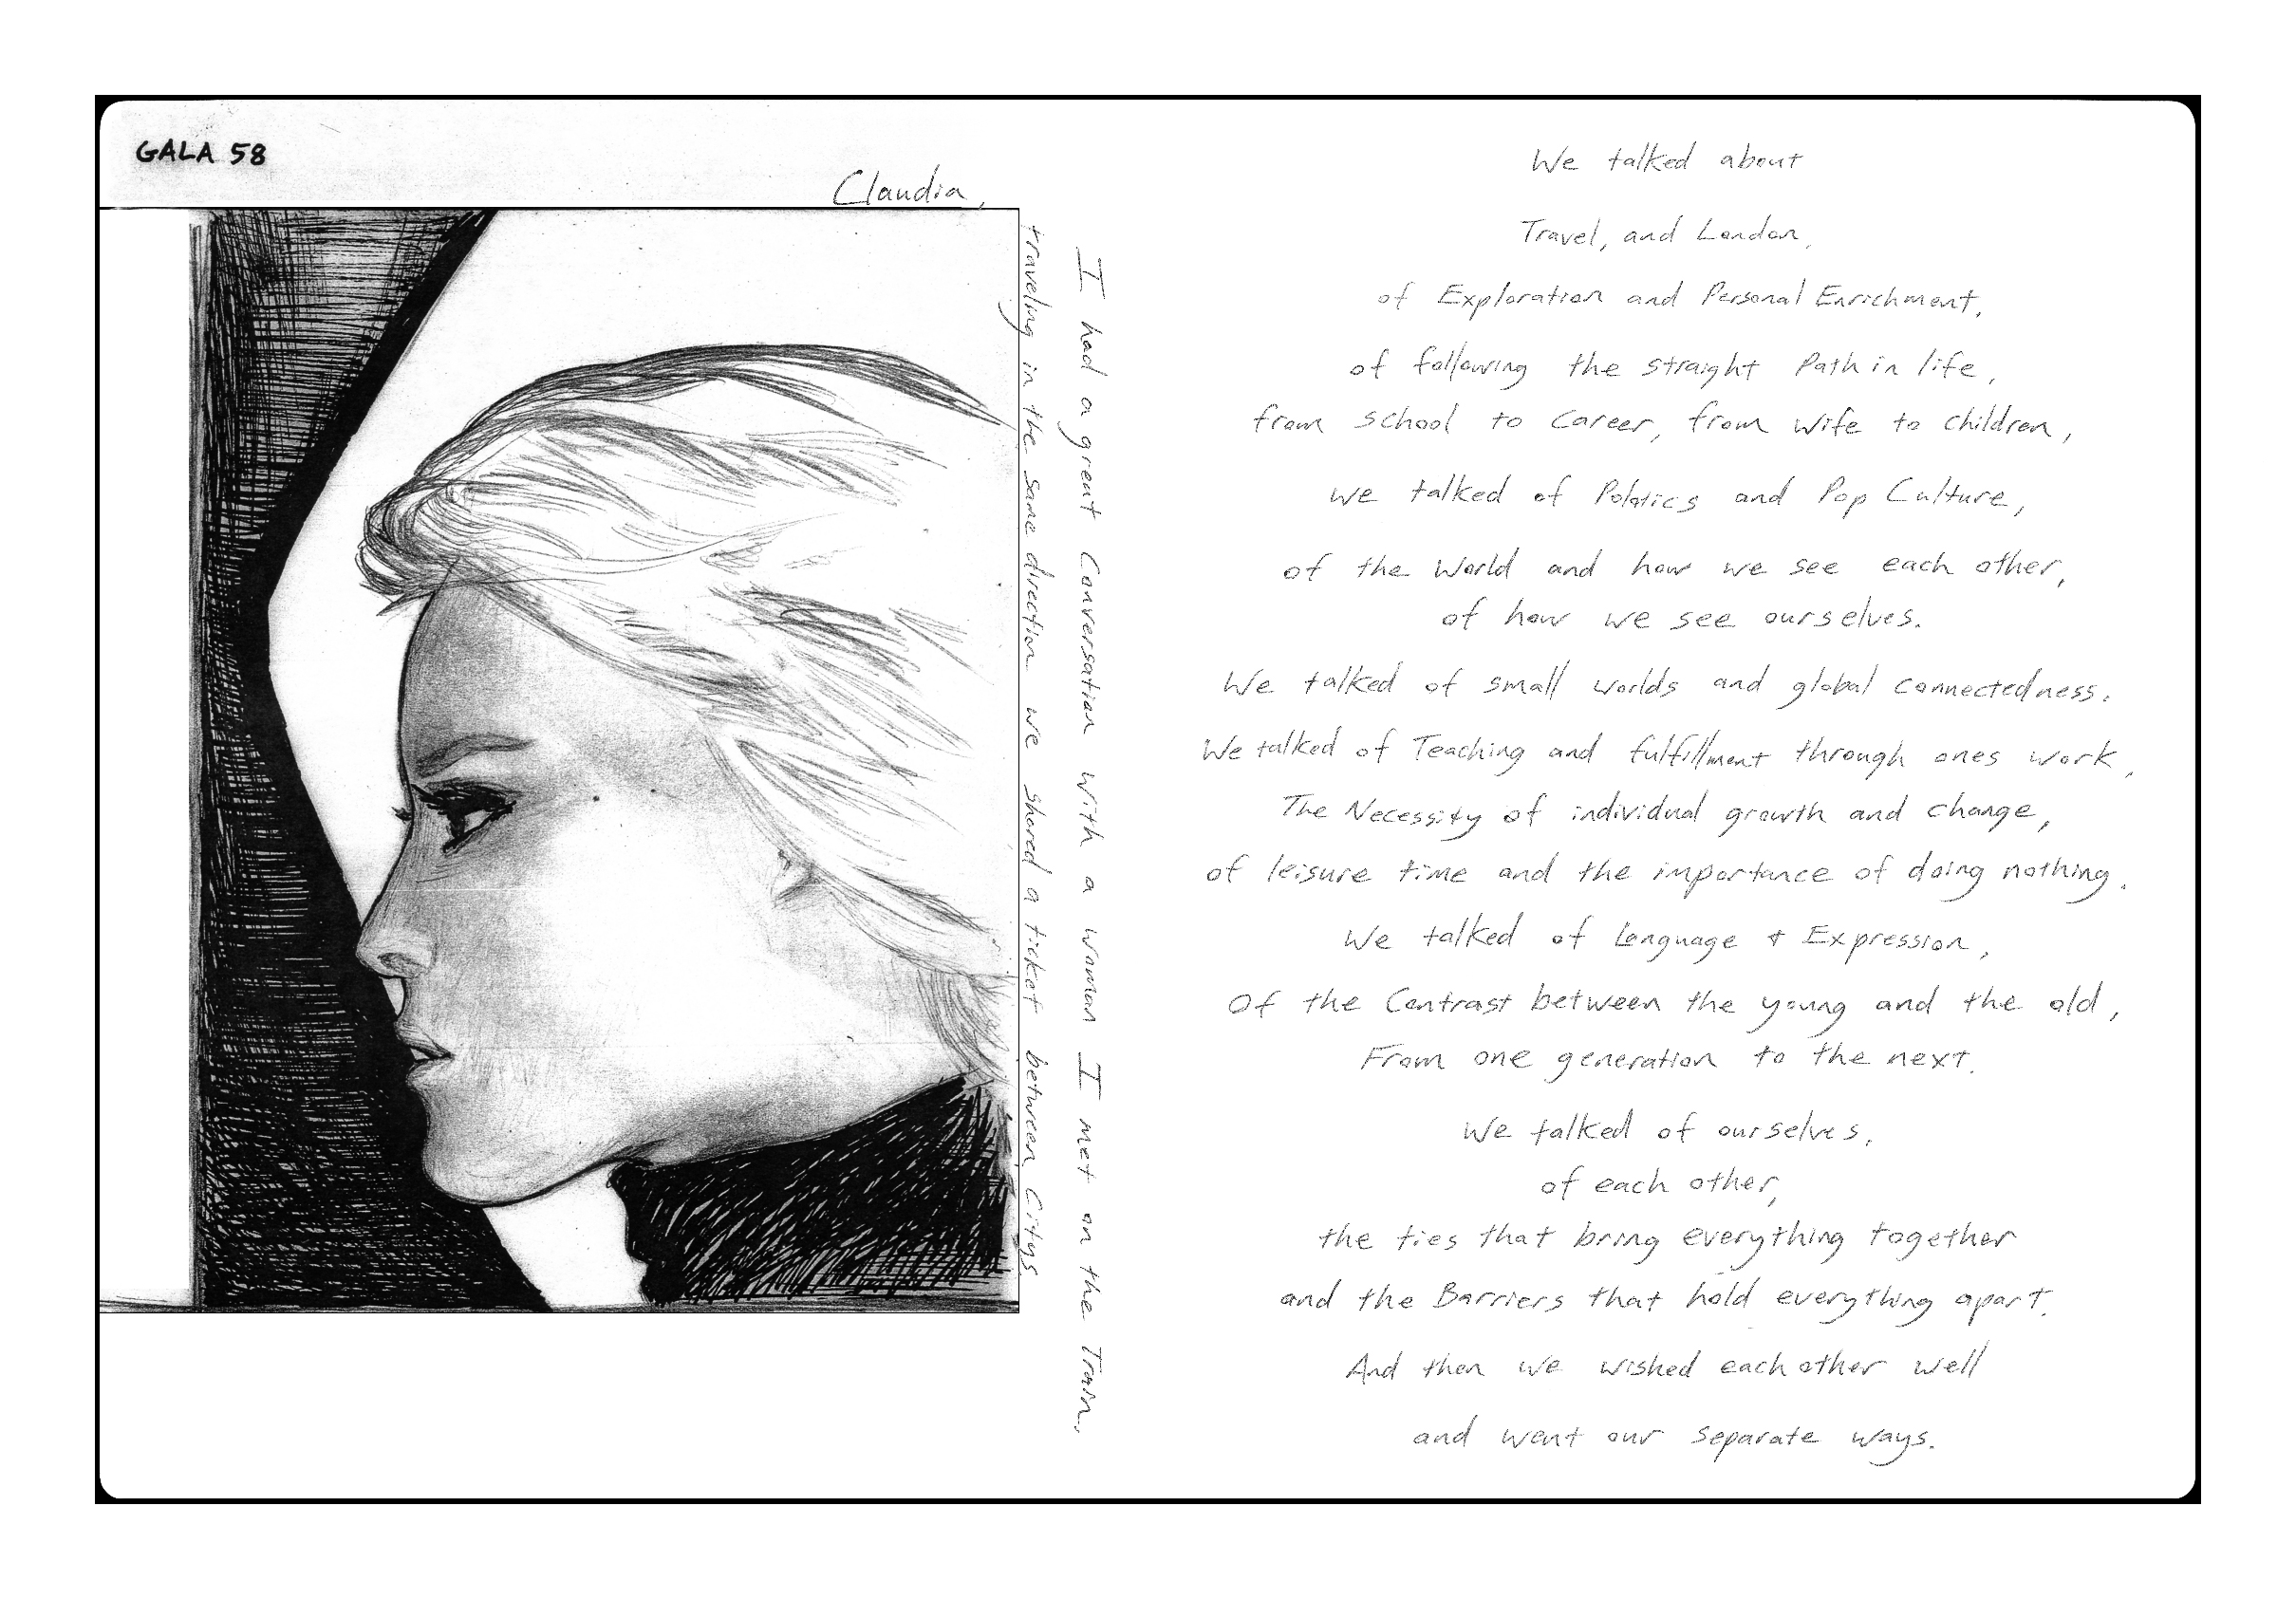 GALA 58
Claudia,
I had a great Conversation with a woman I met on the Train,
traveling in the same direction we shared a ticket between Citys.
We talked about
Travel, and London,
of Exploration and Personal Enrichment,
of following the straight Path in life,
from school to career, from wife to children,
we talked of Politics and Pop Culture,
of the World and how we see each other,
of how we see ourselves.
We talked of small worlds and global connectedness.
We talked of Teaching and fulfillment through ones work,
The Necessity of individual growth and change,
of leisure time and the importance of doing nothing.
We talked of Language + Expression,
Of the Contrast between the young and the old,
From one generation to the next.
We talked of ourselves,
of each other,
the ties that bring everything together
and the Barriers that hold everything apart.
And then we wished each other well
and went our separate ways.